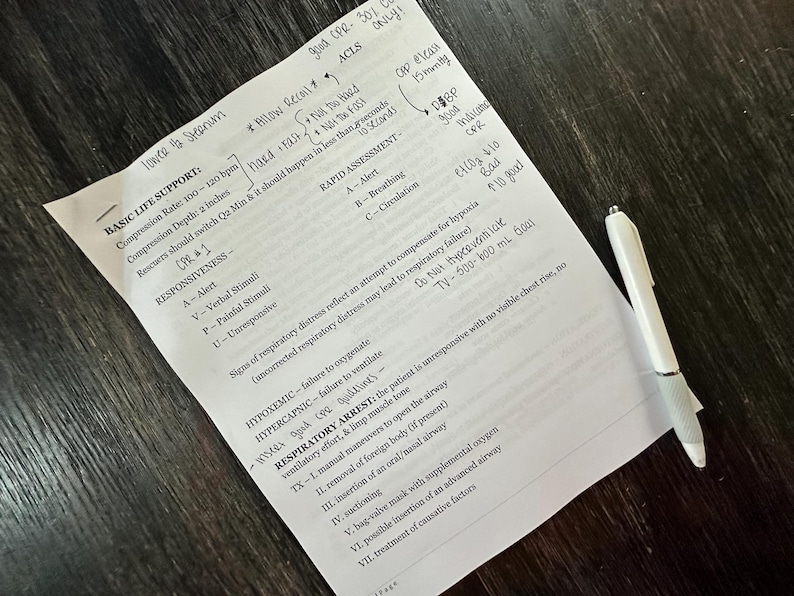 good CPR- 30% CO
ONLY!
ACLS
lower 1/2 sternum
* Allow Recoil *
CPP @ least
15 mmHg
BASIC LIFE SUPPORT:
Compression Rate: 100 – 120 bpm
Compression Depth: 2 inches
hard + Fast
* Not too Hard
* Not too Fast
DBP
good
indicator
CPR
Rescuers should switch Q2 Min & it should happen in less than 5 seconds
10 seconds
CPR #1
RESPONSIVENESS –
A – Alert
V – Verbal Stimuli
P – Painful Stimuli
U – Unresponsive
RAPID ASSESSMENT –
A – Alert
B – Breathing
C – Circulation
etCO2 ↓10
Bad
↑10 good
Signs of respiratory distress reflect an attempt to compensate for hypoxia
(uncorrected respiratory distress may lead to respiratory failure)
Do Not Hyperventilate
TV - 500-600 mL Goal
HYPOXEMIC – failure to oxygenate
HYPERCAPNIC – failure to ventilate
good CPR guidelines –
RESPIRATORY ARREST: the patient is unresponsive with no visible chest rise, no
ventilatory effort, & limp muscle tone
TX – I. manual maneuvers to open the airway
II. removal of foreign body (if present)
III. insertion of an oral/nasal airway
IV. suctioning
V. bag-valve mask with supplemental oxygen
VI. possible insertion of an advanced airway
VII. treatment of causative factors
| Page